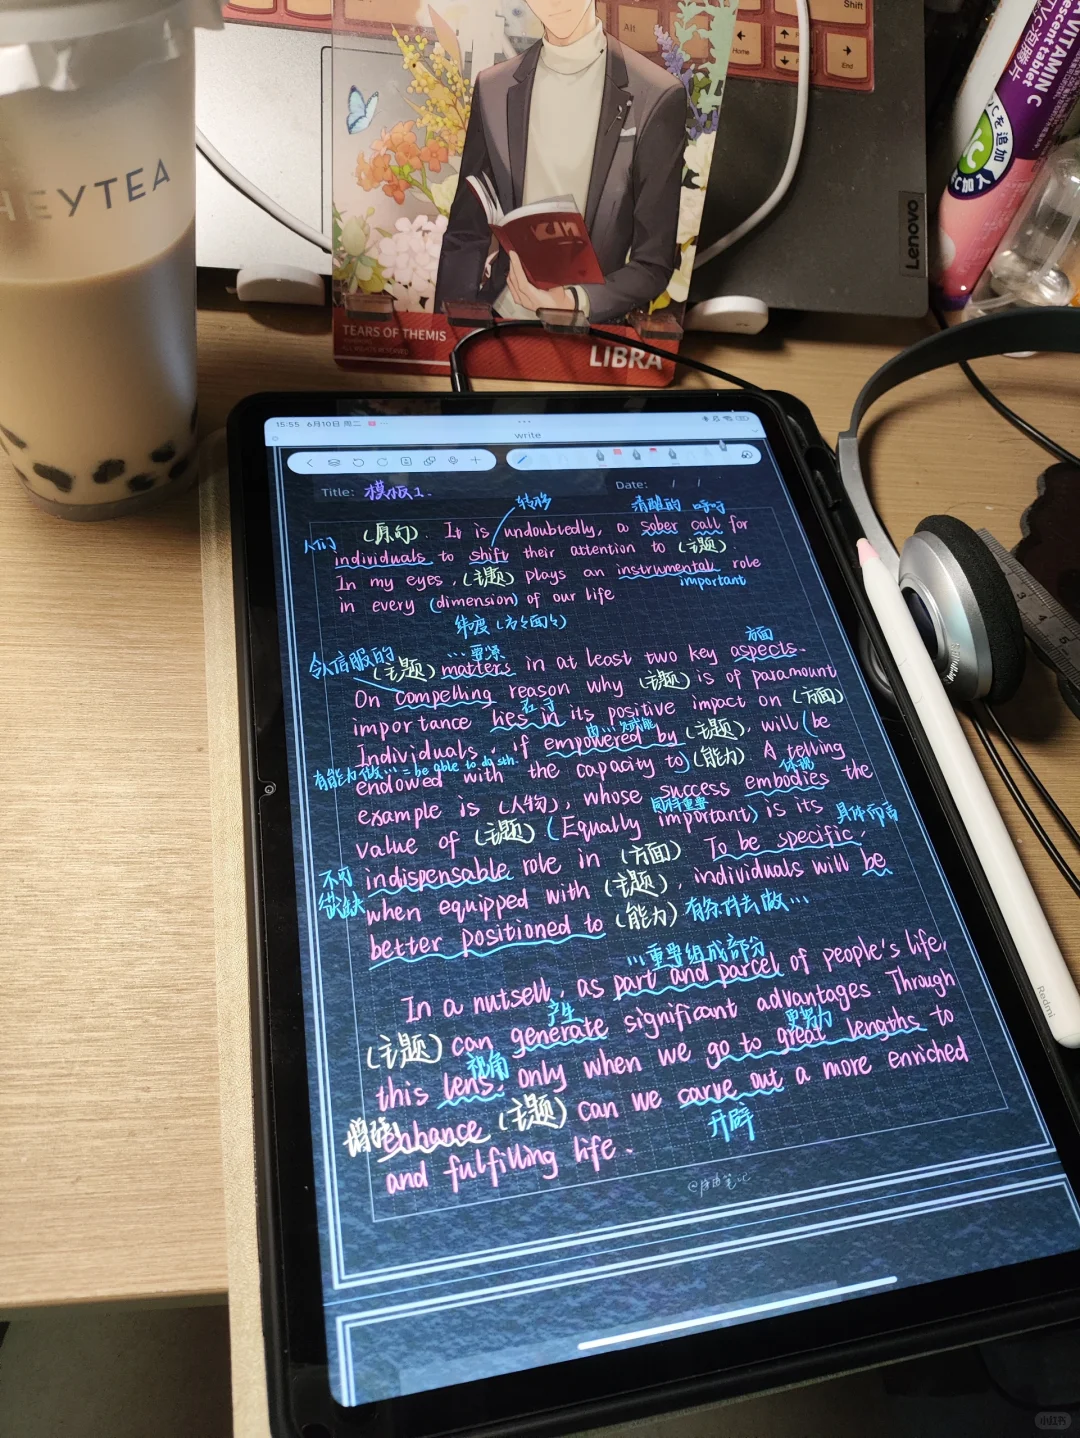 Shift
Alt
Home
End
VITAMIN C
HEYTEA
Lenovo
TEARS OF THEMIS
LIBRA
15:55 6月10日 周二
write
Title: 模板1.
Date: / /
转移
清醒的 呼吁
人们
(原句). It is undoubtedly, a sober call for
individuals to shift their attention to (主题).
In my eyes, (主题) plays an instrumental role
important
in every (dimension) of our life
纬度(方方面面)
令人信服的
方面
(主题) matters in at least two key aspects.
On compelling reason why (主题) is of paramount
在于
importance lies in its positive impact on (方面)
Individuals, if empowered by (主题), will (be
有能力做… = be able to do sth.
endowed with the capacity to) (能力) A telling
体现
example is (人物), whose success embodies the
同样重要
value of (主题) (Equally important) is its
具体而言
不可或缺
indispensable role in (方面) To be specific,
when equipped with (主题), individuals will be
better positioned to (能力) 有条件去做…
…重要组成部分
In a nutsell, as part and parcel of people's life,
产生
(主题) can generate significant advantages. Through
视角
this lens, only when we go to great lengths to
增强
enhance (主题) can we carve out a more enriched
开辟
and fulfilling life.
Redmi
小红书